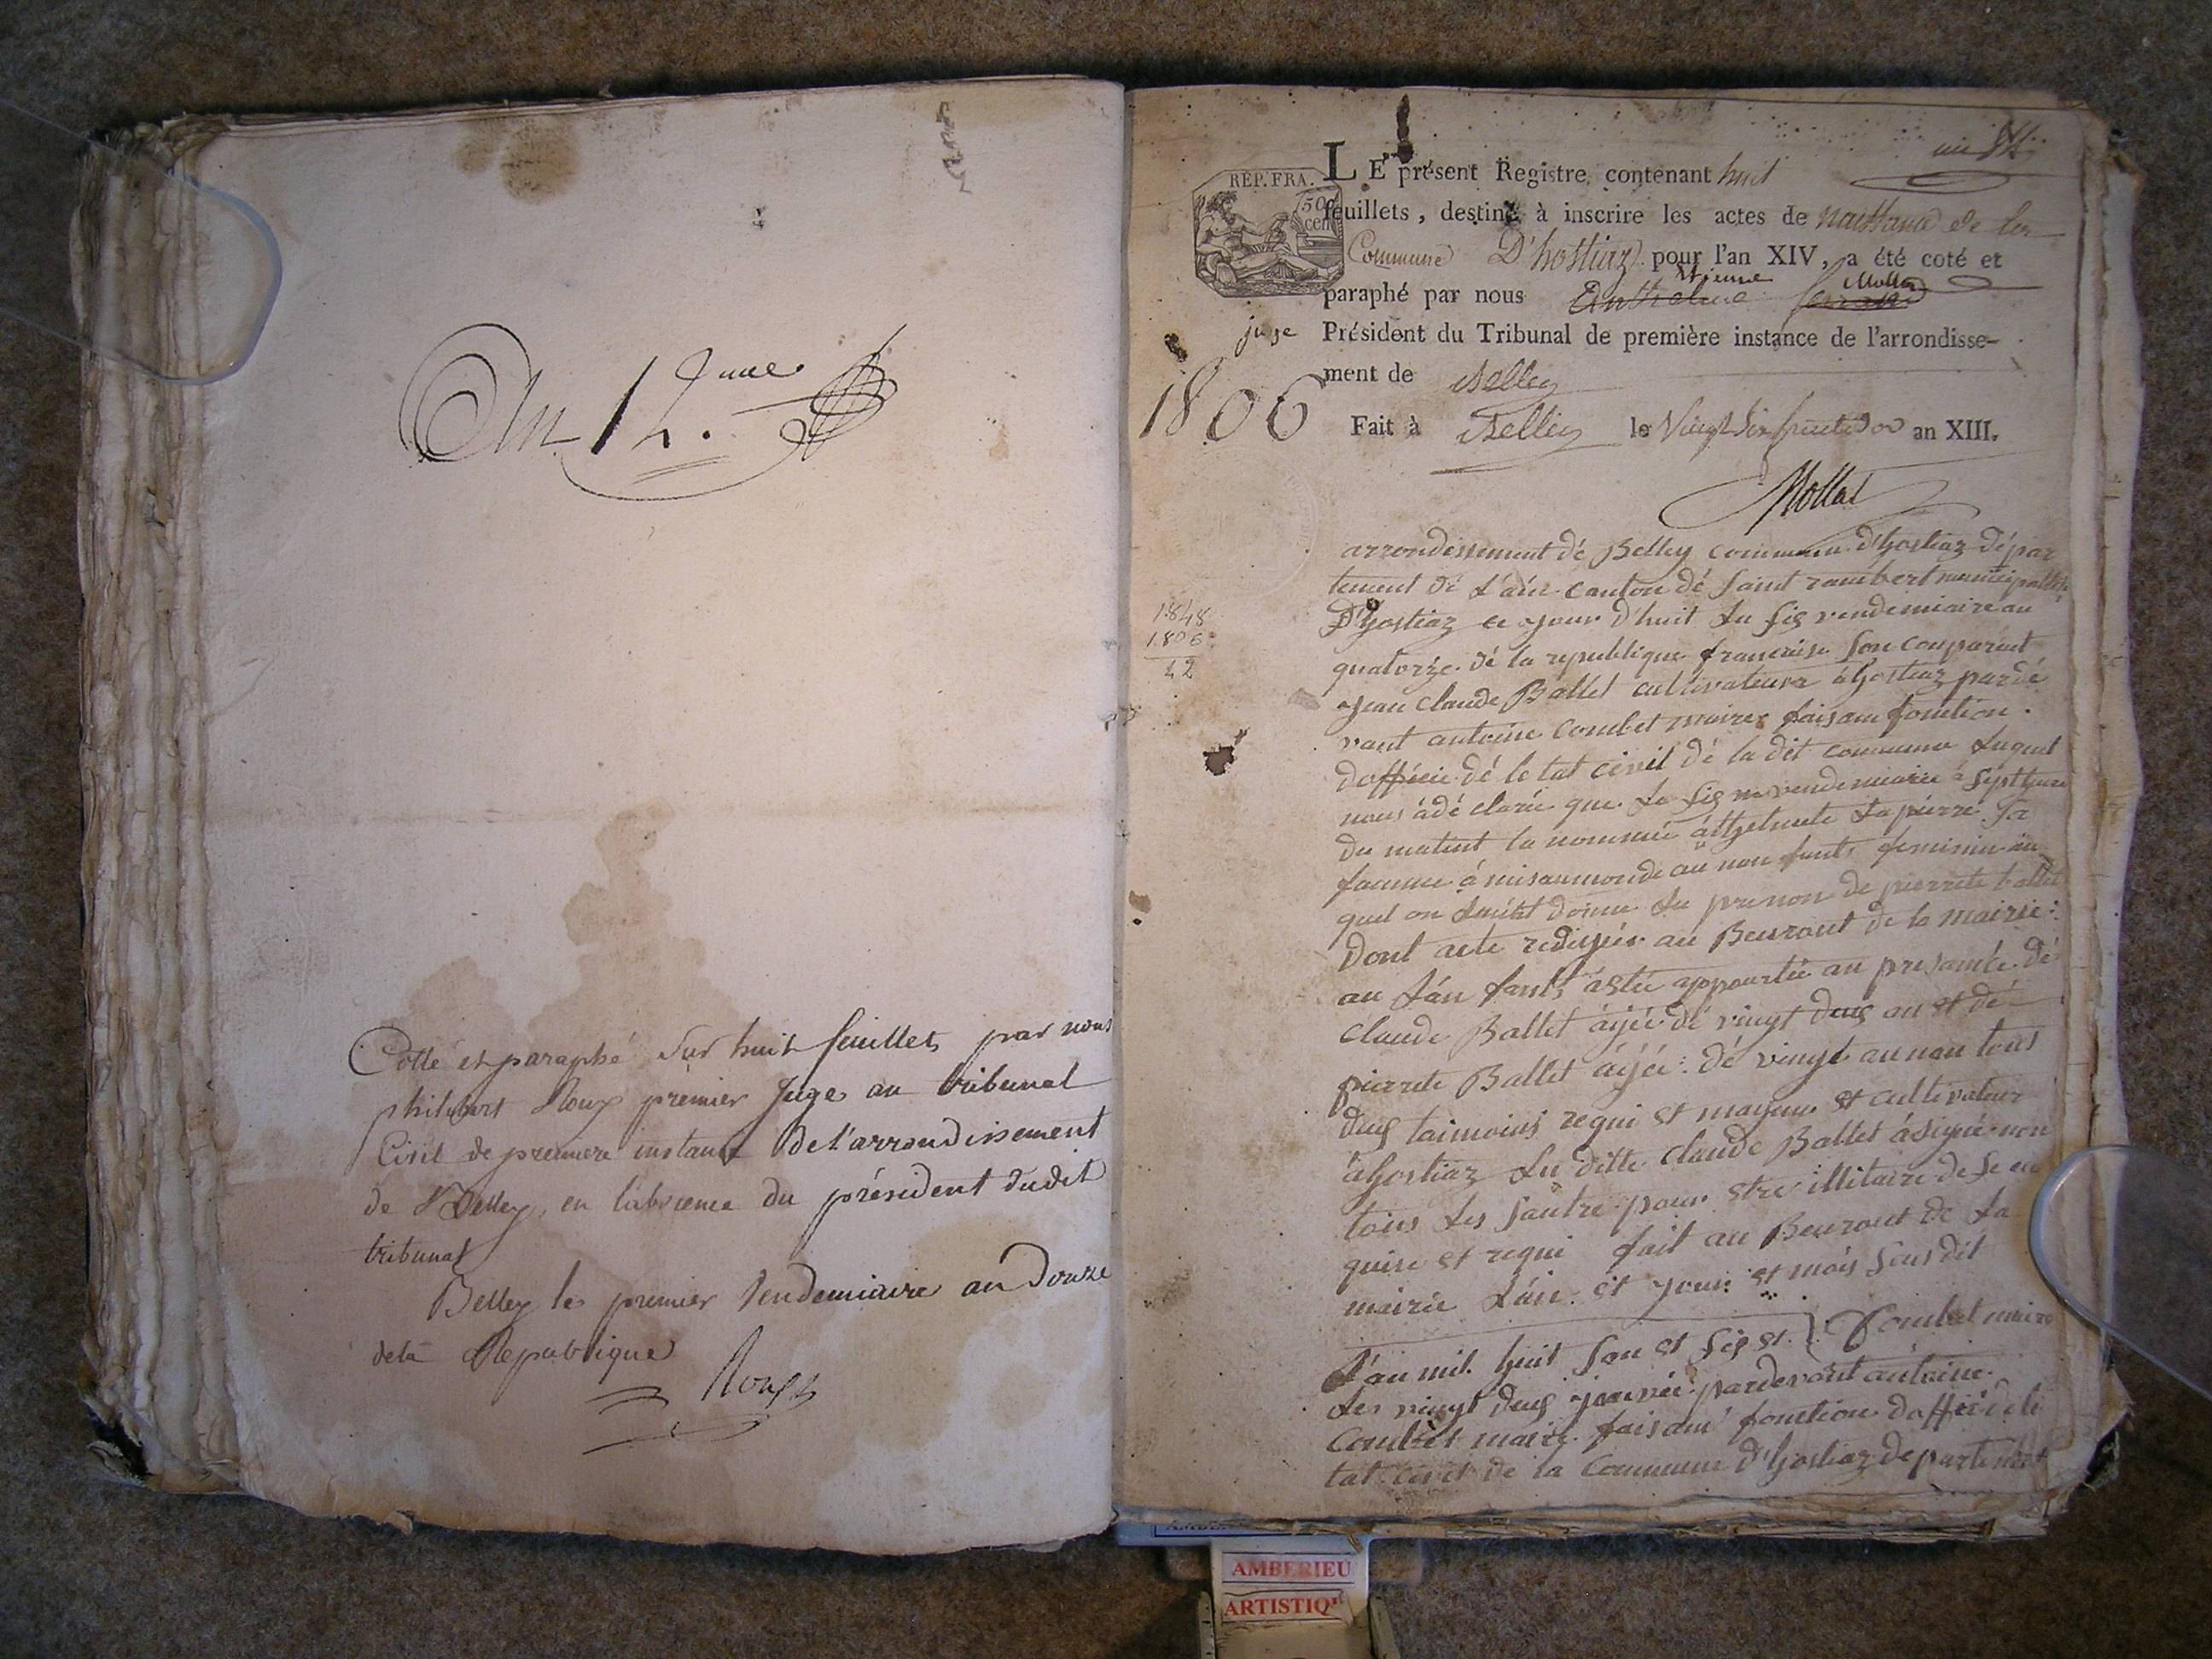 An 12.eme
Cotté et paraphé sur huit feuillets par nous
philibert Roux premier Juge au tribunal
Civil de premiere instance de l'arrondissement
de Belley, en l'absence du président dudit
tribunal
Belley le premier Vendemiaire an Douze
de la Republique
Roux
an 14
REP. FRA.
50
cen
LE présent Registre, contenant huit
feuillets, destiné à inscrire les actes de naissance de la
Commune D'hostiaz pour l'an XIV, a été coté et
paraphé par nous Anthelme
juge Président du Tribunal de première instance de l'arrondisse-
ment de Belley
1806
Fait à Belley le Vingt six fructidor an XIII.
Mollet
1848
1806
42
arrondissement dé Belley commune d'hostiaz dépar
tement dé L'ain canton dé saint rambert municipalité
D'hostiaz ce jour d'huit Lu sis vendemiaire an
quatorze dé la republique francaise son comparut
jean claude Ballet cultivateur a hostiaz pardé
vant antoine Combet maire faisant fonction
dofficie dé le tat civil dé la dit commune Luquel
nous à dé clarée que Le sis vendemiaire à sépt heure
du matint la nommée anthelmete Lapierre sa
famme à mis au monde au non fants feminin au
quel on donne Lu prenon de pierrete ballet
Dont acte redigée au Beuraut de la mairie
au L'an fants àstée appourtée au presance dé
claude Ballet àijée dé vingt deus an et dé
pierrete Ballet àijée dé vingt au nan tous
deus taimoins requi et majeur et cultivateur
à hostiaz Lu ditte claude Ballet à signé non
tous Les sautre pour stre illitaire de se en
quire et requi fait au Beuraut de La
mairie L'an et jour et mois sus dit
Combet maire
L'an mil huit san et sis et
Les vingt deus janvée pardevant antoine
Combet maire faisant fonction doffié de le
tat civil de la Commune d'hostiaz departement
AMBERIEU
ARTISTIQ